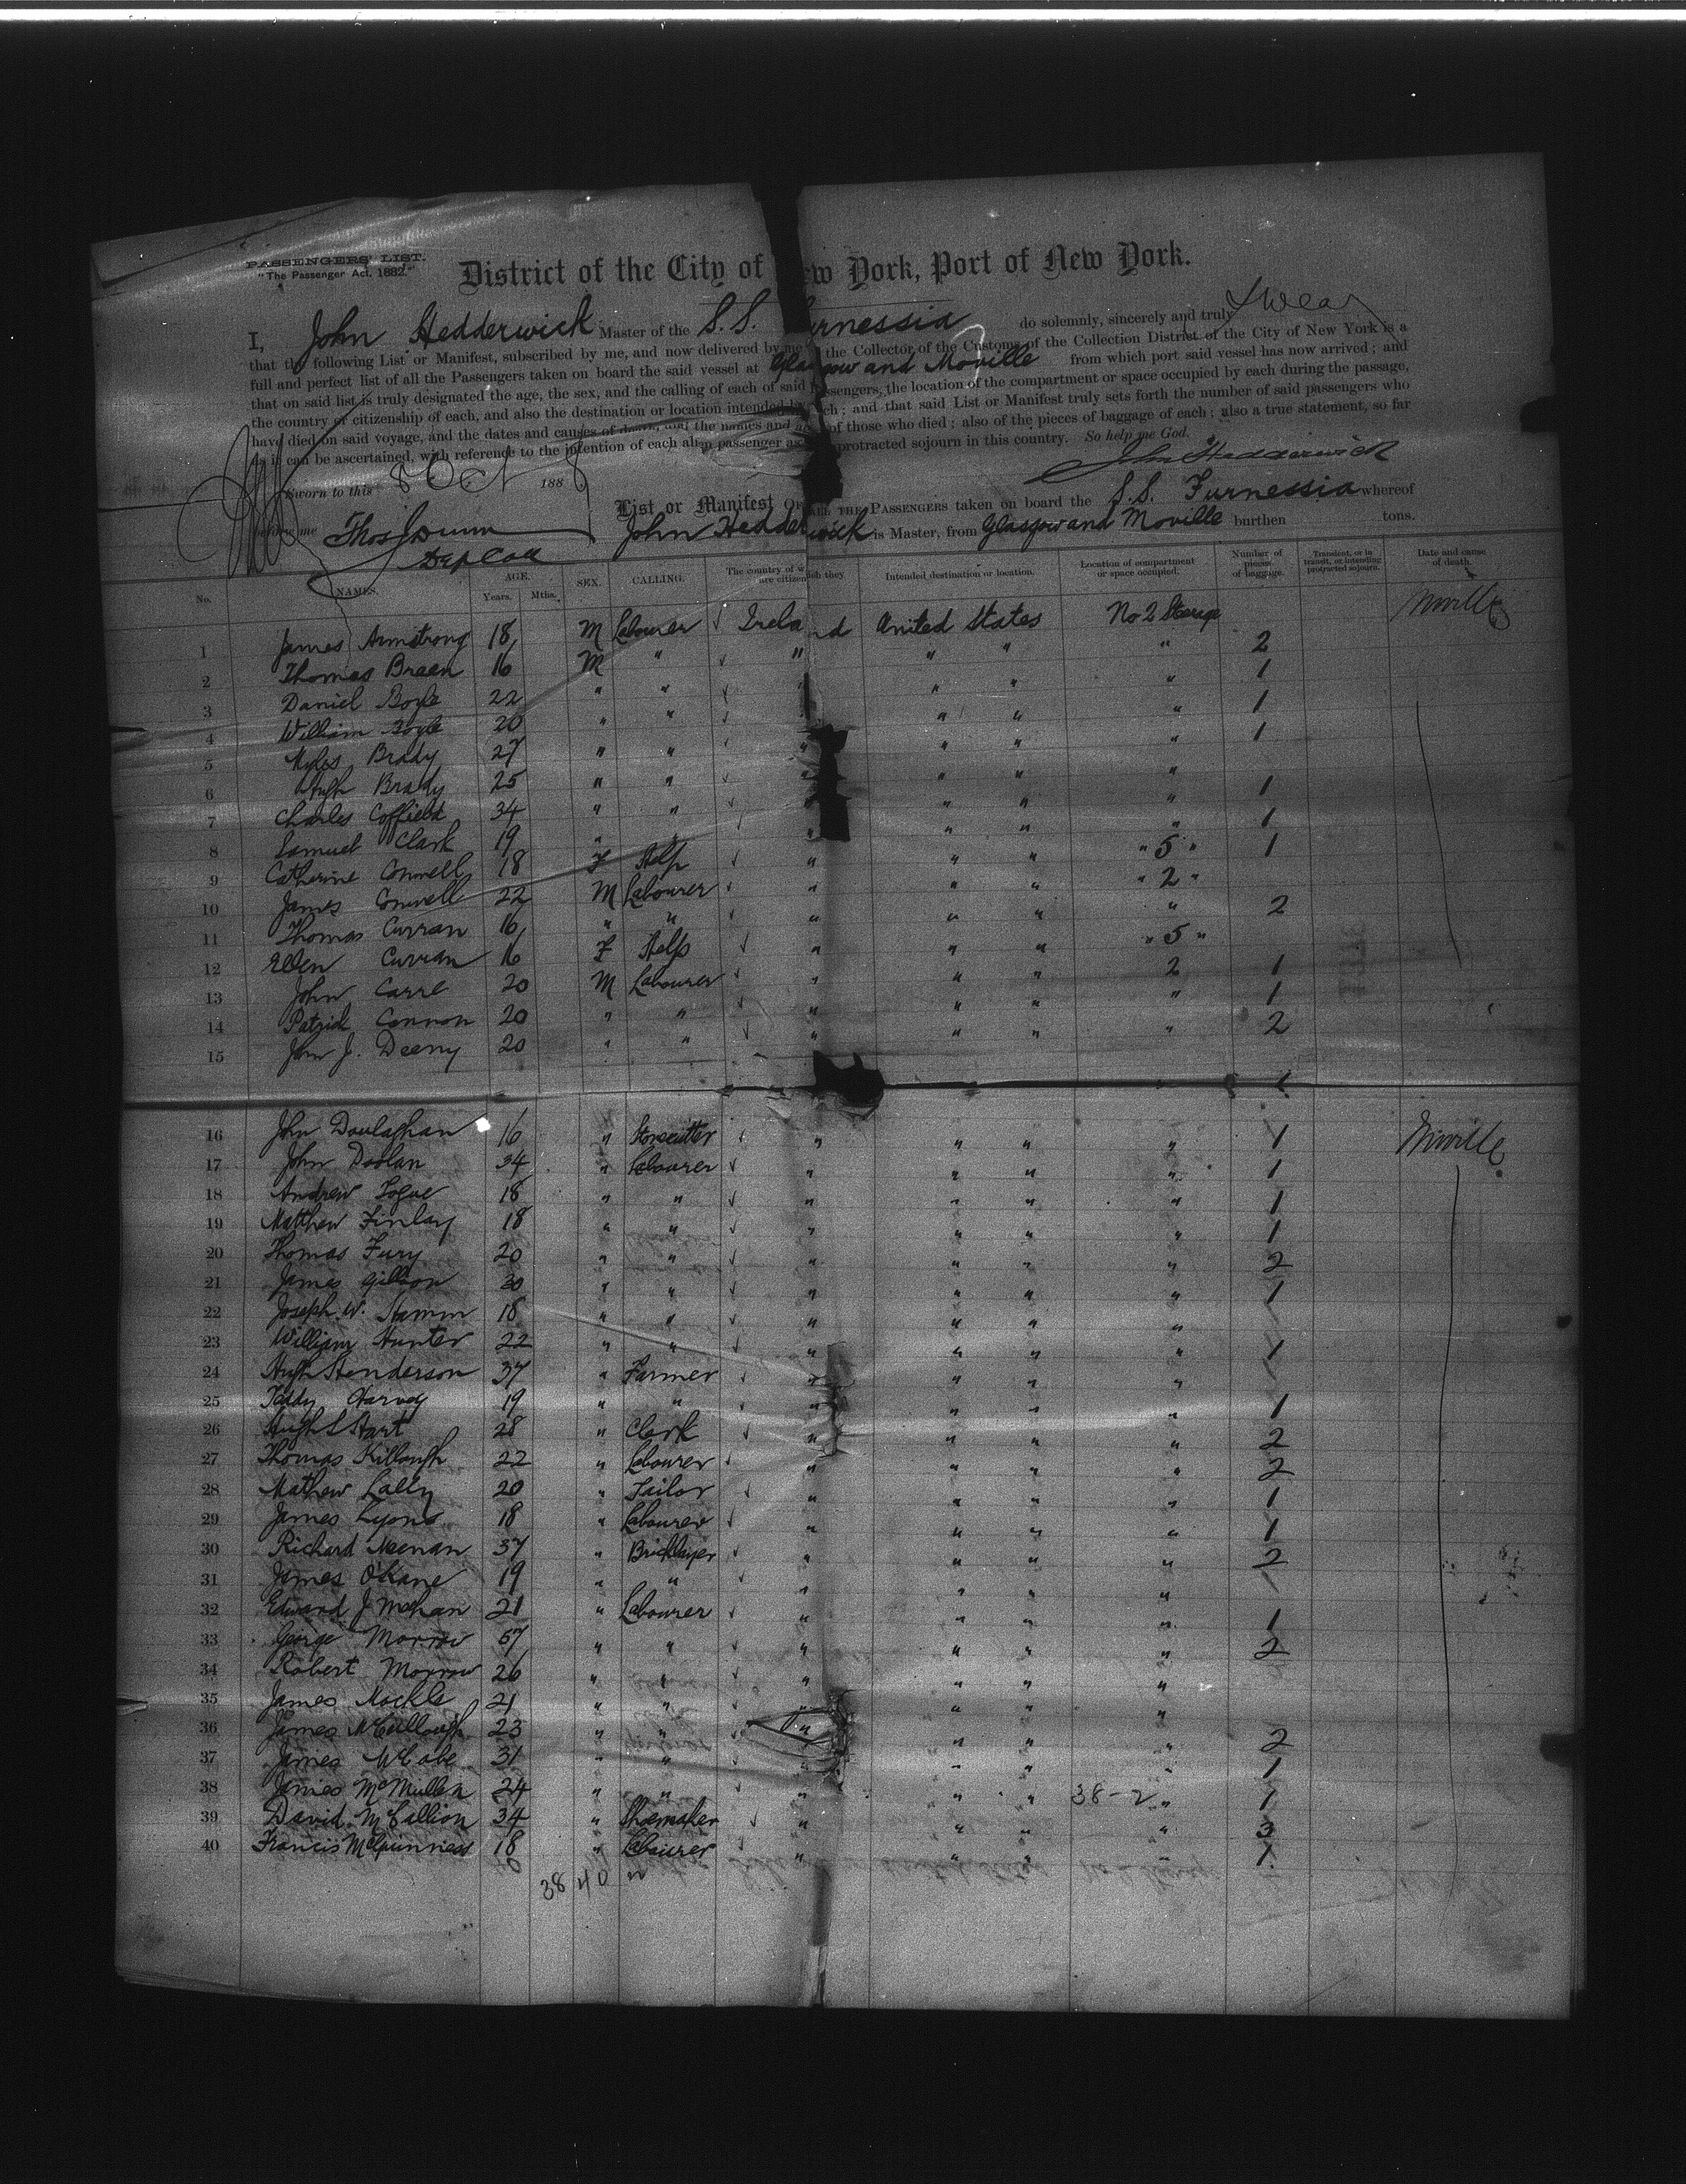 PASSENGERS' LIST.
"The Passenger Act, 1882."
District of the City of New York, Port of New York.
I, John Hedderwick Master of the S.S. Furnessia do solemnly, sincerely and truly Swear
that the following List or Manifest, subscribed by me, and now delivered by me to the Collector of the Customs of the Collection District of the City of New York is a
full and perfect list of all the Passengers taken on board the said vessel at Glasgow and Moville from which port said vessel has now arrived; and
that on said list is truly designated the age, the sex, and the calling of each of said passengers, the location of the compartment or space occupied by each during the passage,
the country of citizenship of each, and also the destination or location intended by each; and that said List or Manifest truly sets forth the number of said passengers who
have died on said voyage, and the dates and causes of death, and the names and ages of those who died; also of the pieces of baggage of each; also a true statement, so far
as it can be ascertained, with reference to the intention of each alien passenger as protracted sojourn in this country. So help me God.
John Hedderwick
Sworn to this 8 Oct 188
before me Thos Dunn
Dep Coll
List or Manifest OF ALL THE PASSENGERS taken on board the S.S. Furnessia whereof
John Hedderwick is Master, from Glasgow and Moville burthen tons.
No. NAMES. AGE. Years. Mths. SEX. CALLING. The country of which they are citizens Intended destination or location. Location of compartment or space occupied. Number of pieces of baggage. Transient, or in transit, or intending protracted sojourn. Date and cause of death.
1 James Armstrong 18 M Labourer Ireland United States No 2 Steerage 2 Moville
2 Thomas Breen 16 M " " " " " 1
3 Daniel Boyle 22 " " " " " " 1
4 William Boyle 20 " " " " " " 1
5 Myles Brady 27 " " " " " "
6 Hugh Brady 25 " " " " " " 1
7 Charles Coffield 34 " " " " " " 1
8 Samuel Clark 19 " " " " " " 1
9 Catherine Conwell 18 F Help " " " " 5 "
10 James Conwell 22 M Labourer " " " " 2 " 2
11 Thomas Curran 16 " " " " " "
12 Ellen Curran 16 F Help " " " " 5 " 1
13 John Carre 20 M Labourer " " " 2 1
14 Patrick Cannon 20 " " " " " " 2
15 John J. Deeny 20 " " " " " " 1
16 John Doulaghan 16 " Stonecutter " " " " 1 Moville
17 John Doolan 34 " Labourer " " " " 1
18 Andrew Logue 18 " " " " " " 1
19 Matthew Finlay 18 " " " " " " 1
20 Thomas Fury 20 " " " " " " 2
21 James Gibson 30 " " " " " " 1
22 Joseph W. Hamm 18 " " " " " "
23 William Hunter 22 " " " " " " 1
24 Hugh Henderson 37 " Farmer " " " "
25 Paddy Harvey 19 " " " " " " 1
26 Hugh S Hart 28 " Clerk " " " " 2
27 Thomas Killough 22 " Labourer " " " " 2
28 Mathew Lally 20 " Tailor " " " " 1
29 James Lyons 18 " Labourer " " " " 1
30 Richard Meenan 37 " Bricklayer " " " " 2
31 James O'Kane 19 " " " " " "
32 Edward J Mehan 21 " Labourer " " " " 1
33 George Morrow 57 " " " " " " 2
34 Robert Morrow 26 " " " " " "
35 James Mackle 21 " " " " " "
36 James McCullough 23 " " " " " " 2
37 James McCabe 31 " " " " " " 1
38 James McMullen 24 " " " " " 38-2 " 1
39 David McCallion 34 " Shoemaker " " " " 3
40 Francis McGuinness 18 " Labourer " " " " 1
38 40